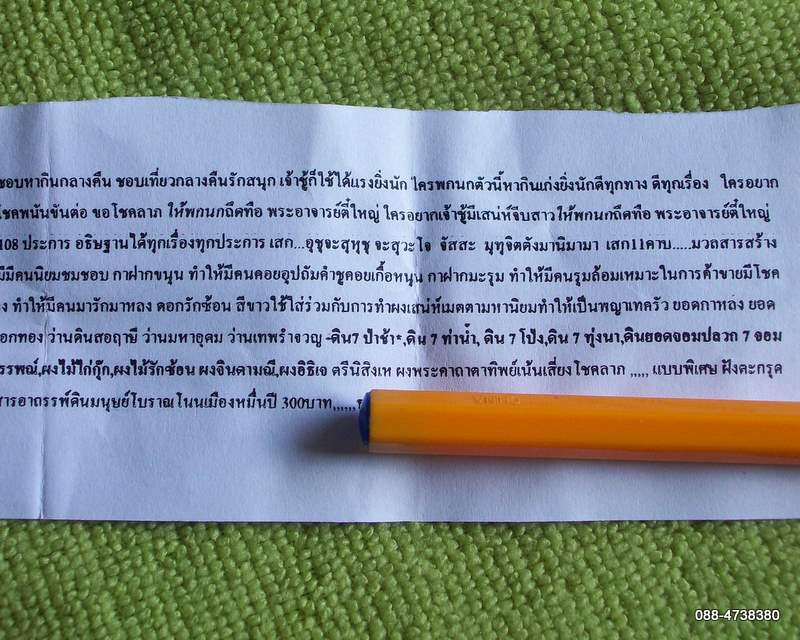 ชอบหากินกลางคืน ชอบเที่ยวกลางคืนรักสนุก เจ้าชู้ก็ใช้ได้แรงยิ่งนัก ใครพกนกตัวนี้หากินเก่งยิ่งนักดีทุกทาง ดีทุกเรื่อง ใครอยาก
โชคพนันขันต่อ ขอโชคลาภ ให้พกนกถึดทือ พระอาจารย์ตี๋ใหญ่ ใครอยากเจ้าชู้มีเสน่ห์จีบสาวให้พกนกถึดทือ พระอาจารย์ตี๋ใหญ่
108 ประการ อธิษฐานได้ทุกเรื่องทุกประการ เสก...อุชุจะสุหุชุ จะสุวะโจ จัสสะ มุทุจิตตังมานิมามา เสก11คาบ.....มวลสารสร้าง
มีคนนิยมชมชอบ กาฝากขนุน ทำให้มีคนคอยอุปถัมค้ำชูคอยเกื้อหนุน กาฝากมะรุม ทำให้มีคนรุมล้อมเหมาะในการค้าขายมีโชค
ทำให้มีคนมารักมาหลง ดอกรักซ้อน สีขาวใช้ใส่ร่วมกับการทำผงเสน่ห์เมตตามหานิยมทำให้เป็นพญาเทครัว ยอดกาหลง ยอด
ว่านดินสอฤาษี ว่านมหาอุดม ว่านเทพรำจวญ -ดิน7 ป่าช้า*,ดิน 7 ท่าน้ำ, ดิน 7 โป่ง,ดิน 7 ทุ่งนา,ดินยอดจอมปลวก 7 จอม
ผงไม้ไก่กุ๊ก,ผงไม้รักซ้อน ผงจินดามณี,ผงอิธิเจ ตรีนิสิงเห ผงพระคาถาตาทิพย์เน้นเสี่ยงโชคลาภ ,,,,, แบบพิเศษ ฝังตะกรุด
สารอาถรรพ์ดินมนุษย์โบราณโนนเมืองหมื่นปี 300บาท,,,,,,
088-4738380